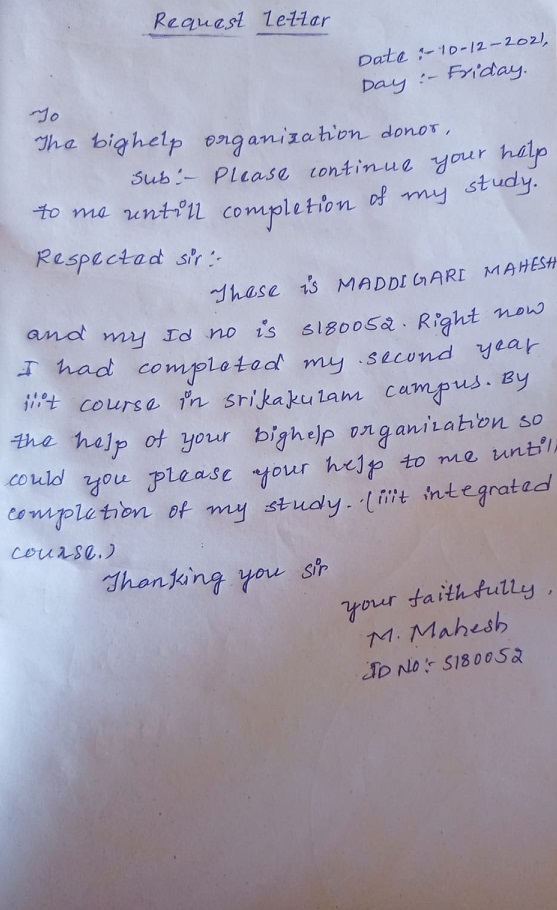 Request letter
Date :- 10-12-2021,
Day :- Friday.
To
The bighelp organization donor,
Sub :- Please continue your help
to me untill completion of my study.
Respected sir :-
These is MADDIGARI MAHESH
and my Id no is S180052. Right now
I had completed my second year
iiit course in srikakulam campus. By
the help of your bighelp organization so
could you please your help to me untill
completion of my study. (iiit integrated
course.)
Thanking you sir
your faithfully,
M. Mahesh
ID No :- S180052